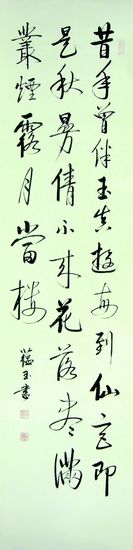 昔年曾伴玉真游每到仙宫即
是秋曼倩不来花落尽满
丛烟露月当楼
蕴玉书